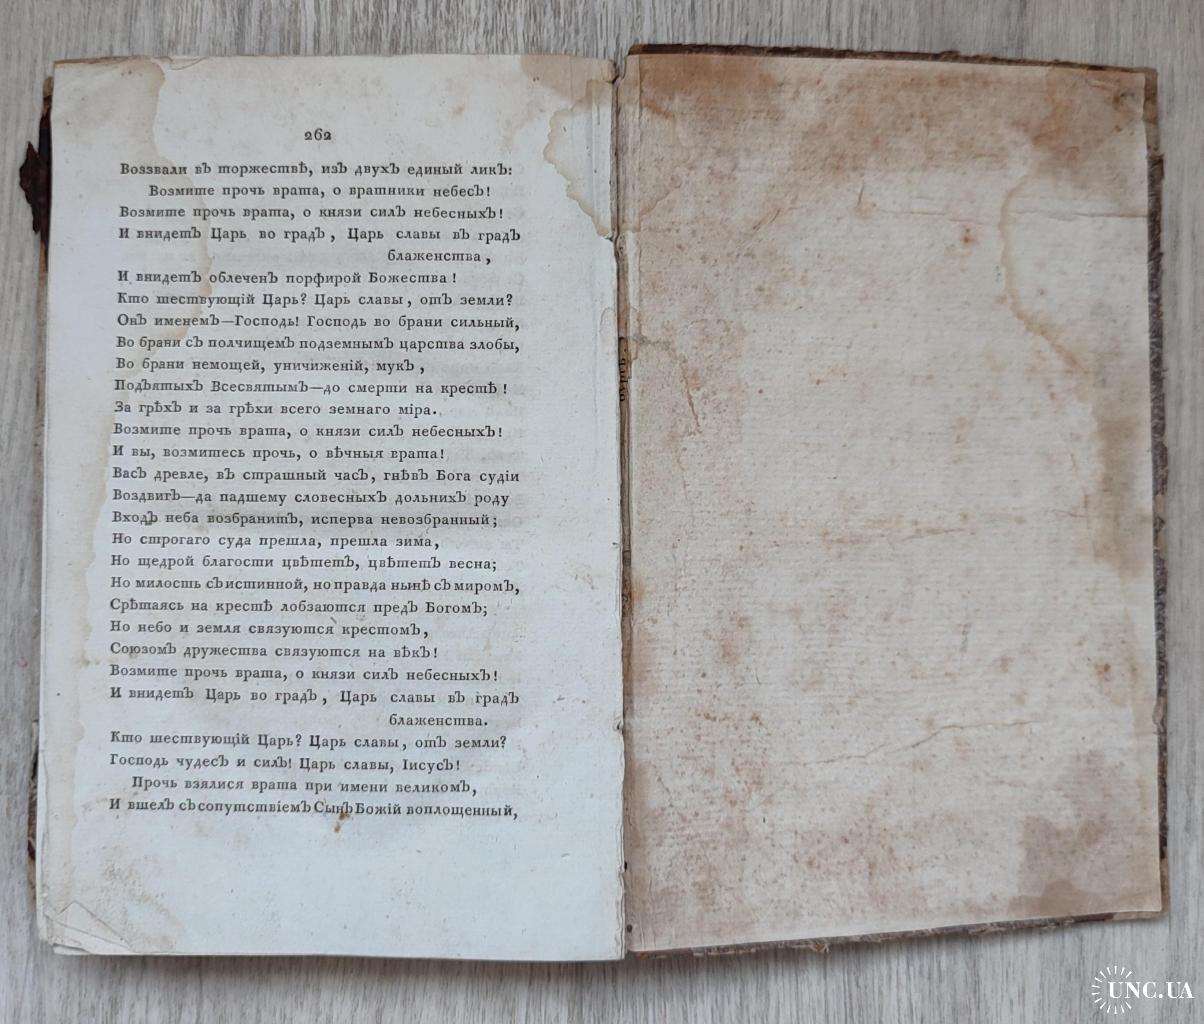 262
Воззвали въ торжествѣ, изъ двухъ единый ликъ:
Возмите прочь врата, о вратники небесъ!
Возмите прочь врата, о князи силъ небесныхъ!
И внидетъ Царь во градъ, Царь славы въ градъ
блаженства,
И внидетъ облеченъ порфирой Божества!
Кто шествующій Царь? Царь славы, отъ земли?
Онъ именемъ—Господь! Господь во брани сильный,
Во брани съ полчищемъ подземнымъ царства злобы,
Во брани немощей, уничиженій, мукъ,
Подъятыхъ Всесвятымъ—до смерти на крестѣ!
За грѣхъ и за грѣхи всего земнаго міра.
Возмите прочь врата, о князи силъ небесныхъ!
И вы, возмитесь прочь, о вѣчныя врата!
Васъ древле, въ страшный часъ, гнѣвъ Бога судіи
Воздвигъ—да падшему словесныхъ дольнихъ роду
Входъ неба возбранитъ, исперва невозбранный;
Но строгаго суда прешла, прешла зима,
Но щедрой благости цвѣтетъ, цвѣтетъ весна;
Но милость съ истинной, но правда нынѣ съ миромъ,
Срѣтаясь на крестѣ лобзаются предъ Богомъ;
Но небо и земля связуются крестомъ,
Союзомъ дружества связуются на вѣкъ!
Возмите прочь врата, о князи силъ небесныхъ!
И внидетъ Царь во градъ, Царь славы въ градъ
блаженства.
Кто шествующій Царь? Царь славы, отъ земли?
Господь чудесъ и силъ! Царь славы, Іисусъ!
Прочь взялися врата при имени великомъ,
И вшелъ съ сопутствіемъ Сынъ Божій воплощенный,
UNC.UA